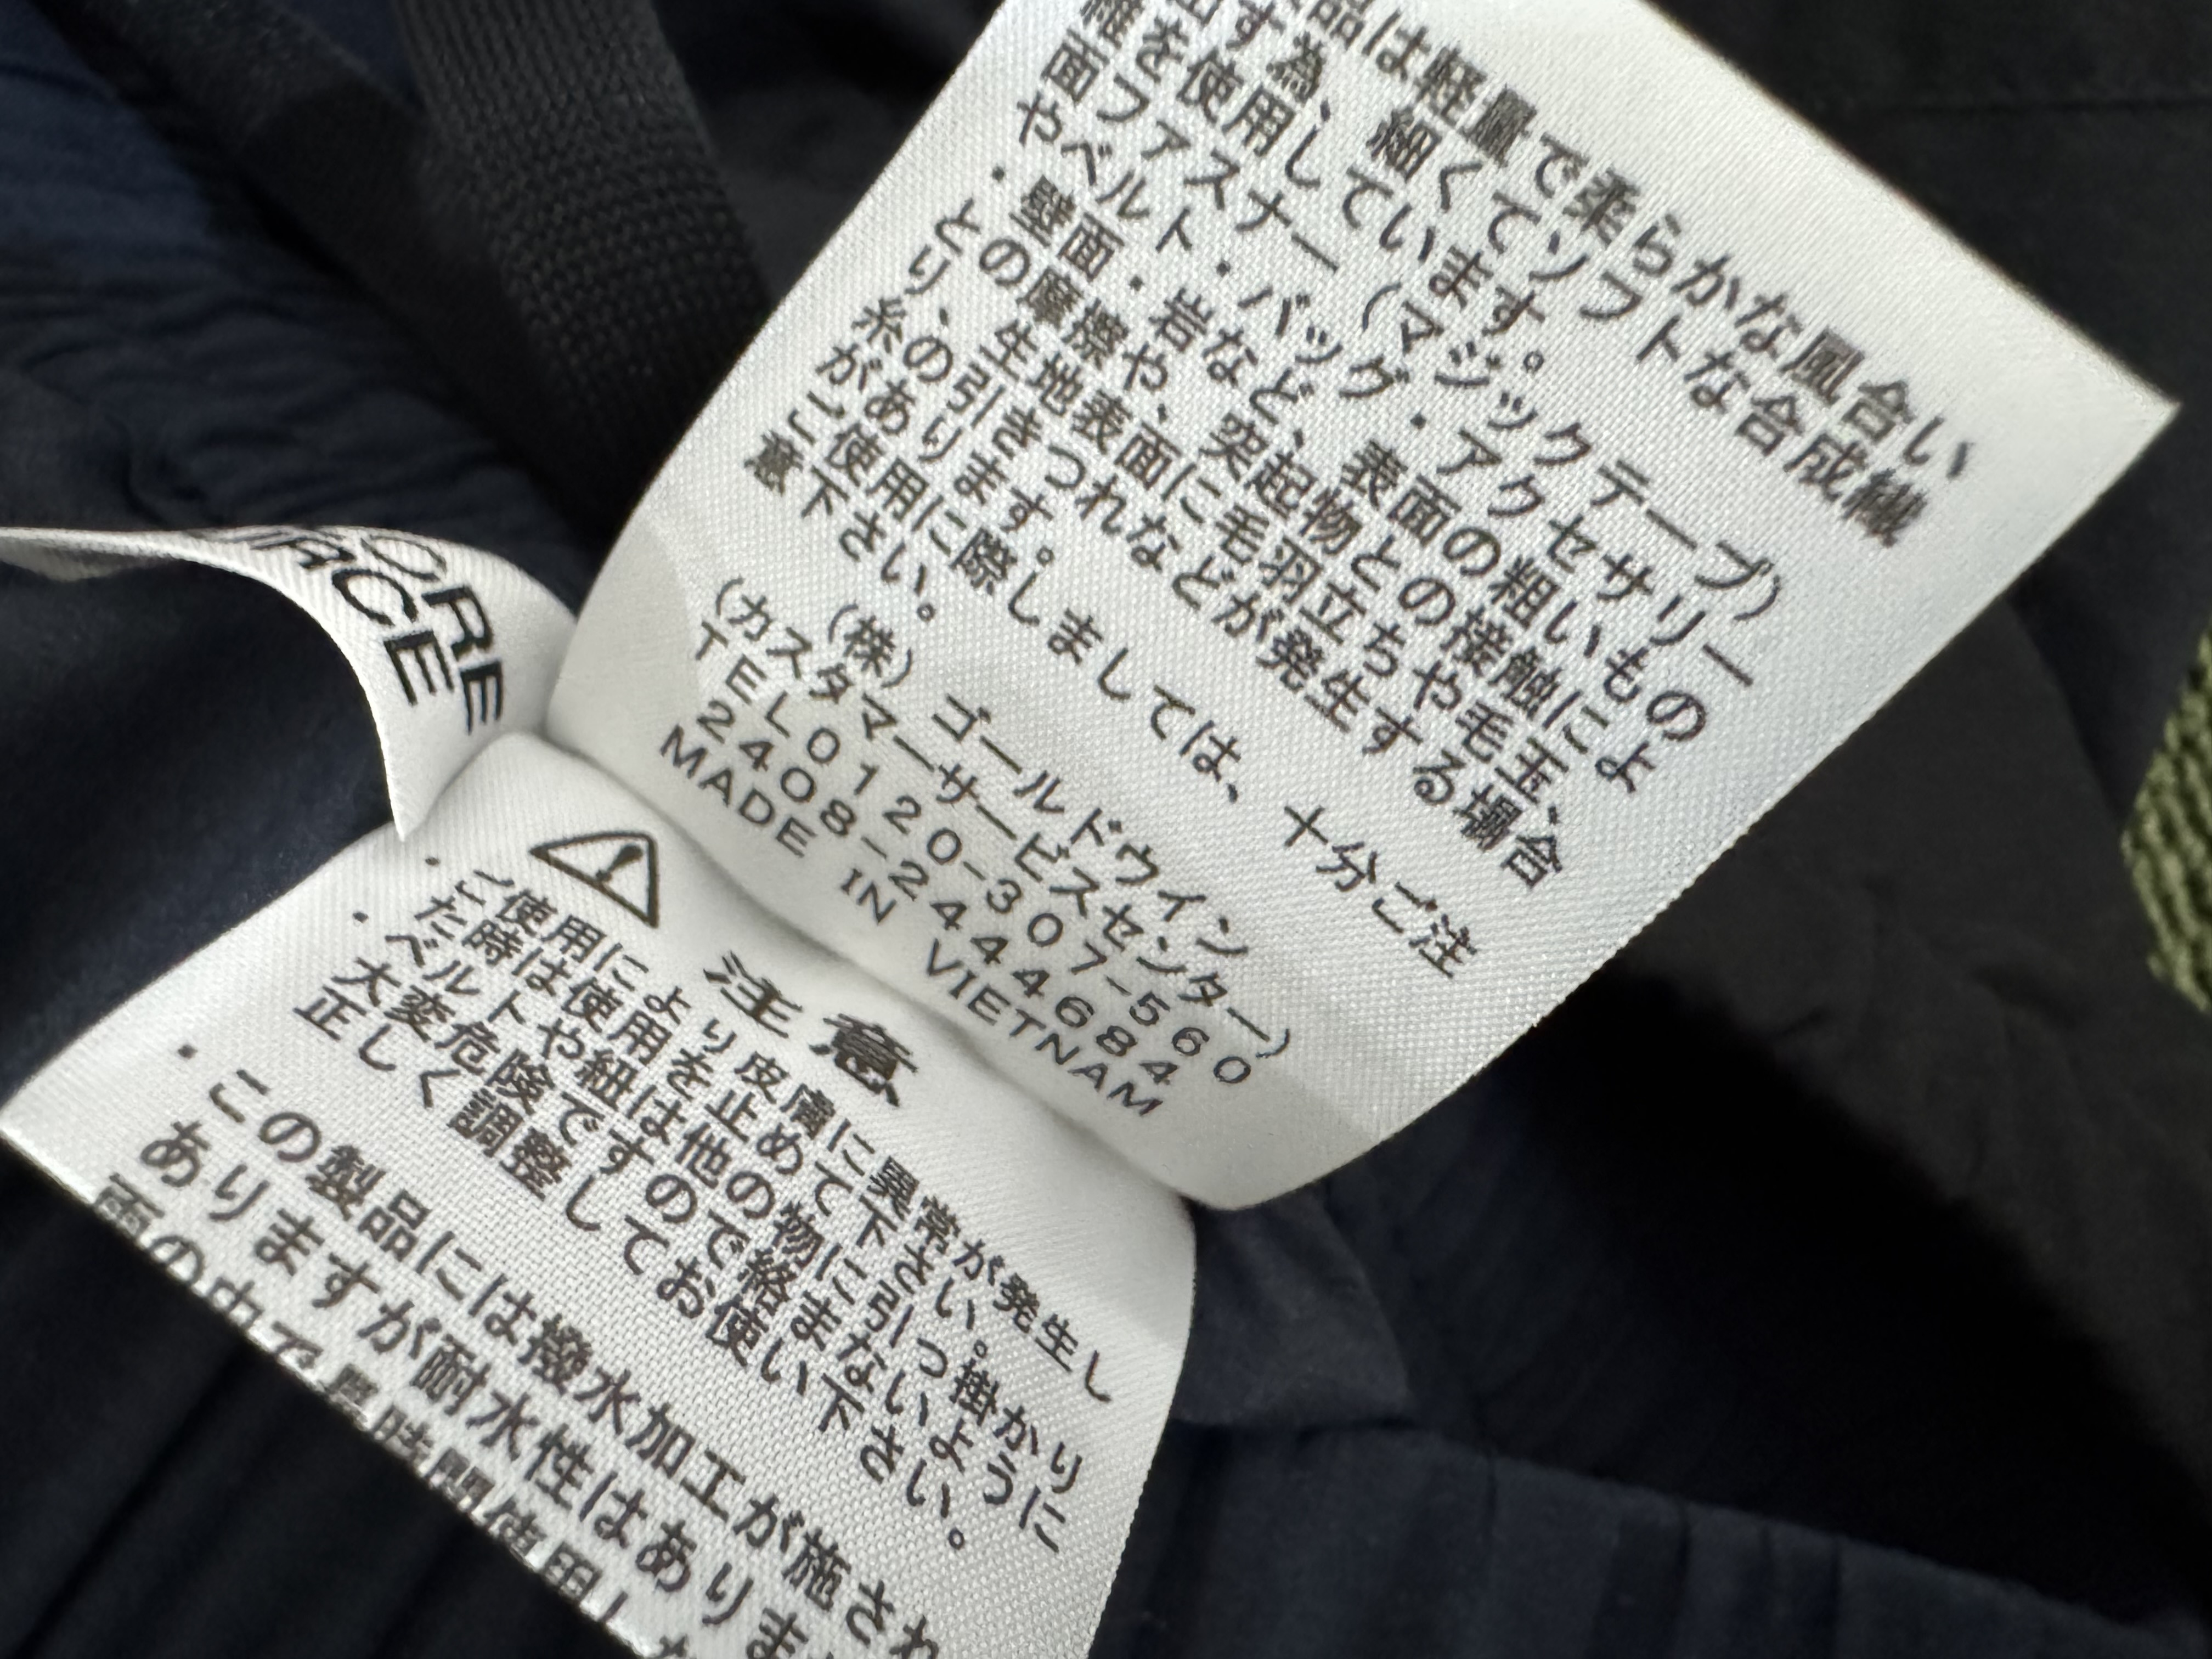 品は軽量で柔らかな風合い
出す為、細くてソフトな合成繊
維を使用しています。
面ファスナー（マジックテープ）
やベルト・バッグ・アクセサリー
・壁面・岩など、表面の粗いもの
との摩擦や、突起物との接触によ
り、生地表面に毛羽立ちや毛玉、
糸の引きつれなどが発生する場合
があります。
ご使用に際しましては、十分ご注
意下さい。
（株）ゴールドウイン
（カスタマーサービスセンター）
TEL0120-307-560
2408-2444684
MADE IN VIETNAM
ORE
FACE
注意
・ご使用により皮膚に異常が発生し
た時は使用を止めて下さい。
・ベルトや紐は他の物に引っ掛かり
大変危険ですので絡まないように
正しく調整してお使い下さい。
・この製品には撥水加工が施され
ありますが耐水性はありま
雨の中で長時間使用し